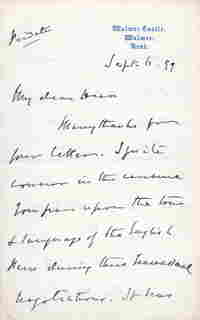 Private
Walmer Castle,
Walmer,
Kent.
Sept. 6. 99
My dear
Many thanks for
your letter. I quite
concur in the censure
you pass upon the tone
& language of the English
Press during these Transvaal
negotiations. It has